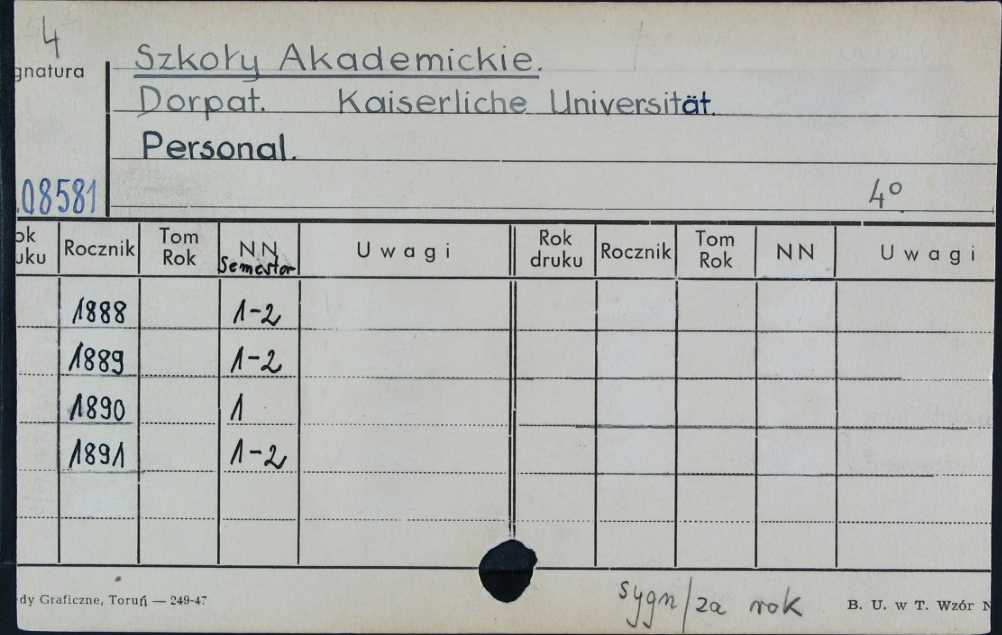 4
gnatura
Szkoły Akademickie.
Dorpat. Kaiserliche Universität.
Personal.
.08581
4º
ok uku Rocznik Tom Rok NN Semestor Uwagi Rok druku Rocznik Tom Rok NN Uwagi
1888 1-2
1889 1-2
1890 1
1891 1-2
dy Graficzne, Toruń — 249-47
sygn/za rok
B. U. w T. Wzór N